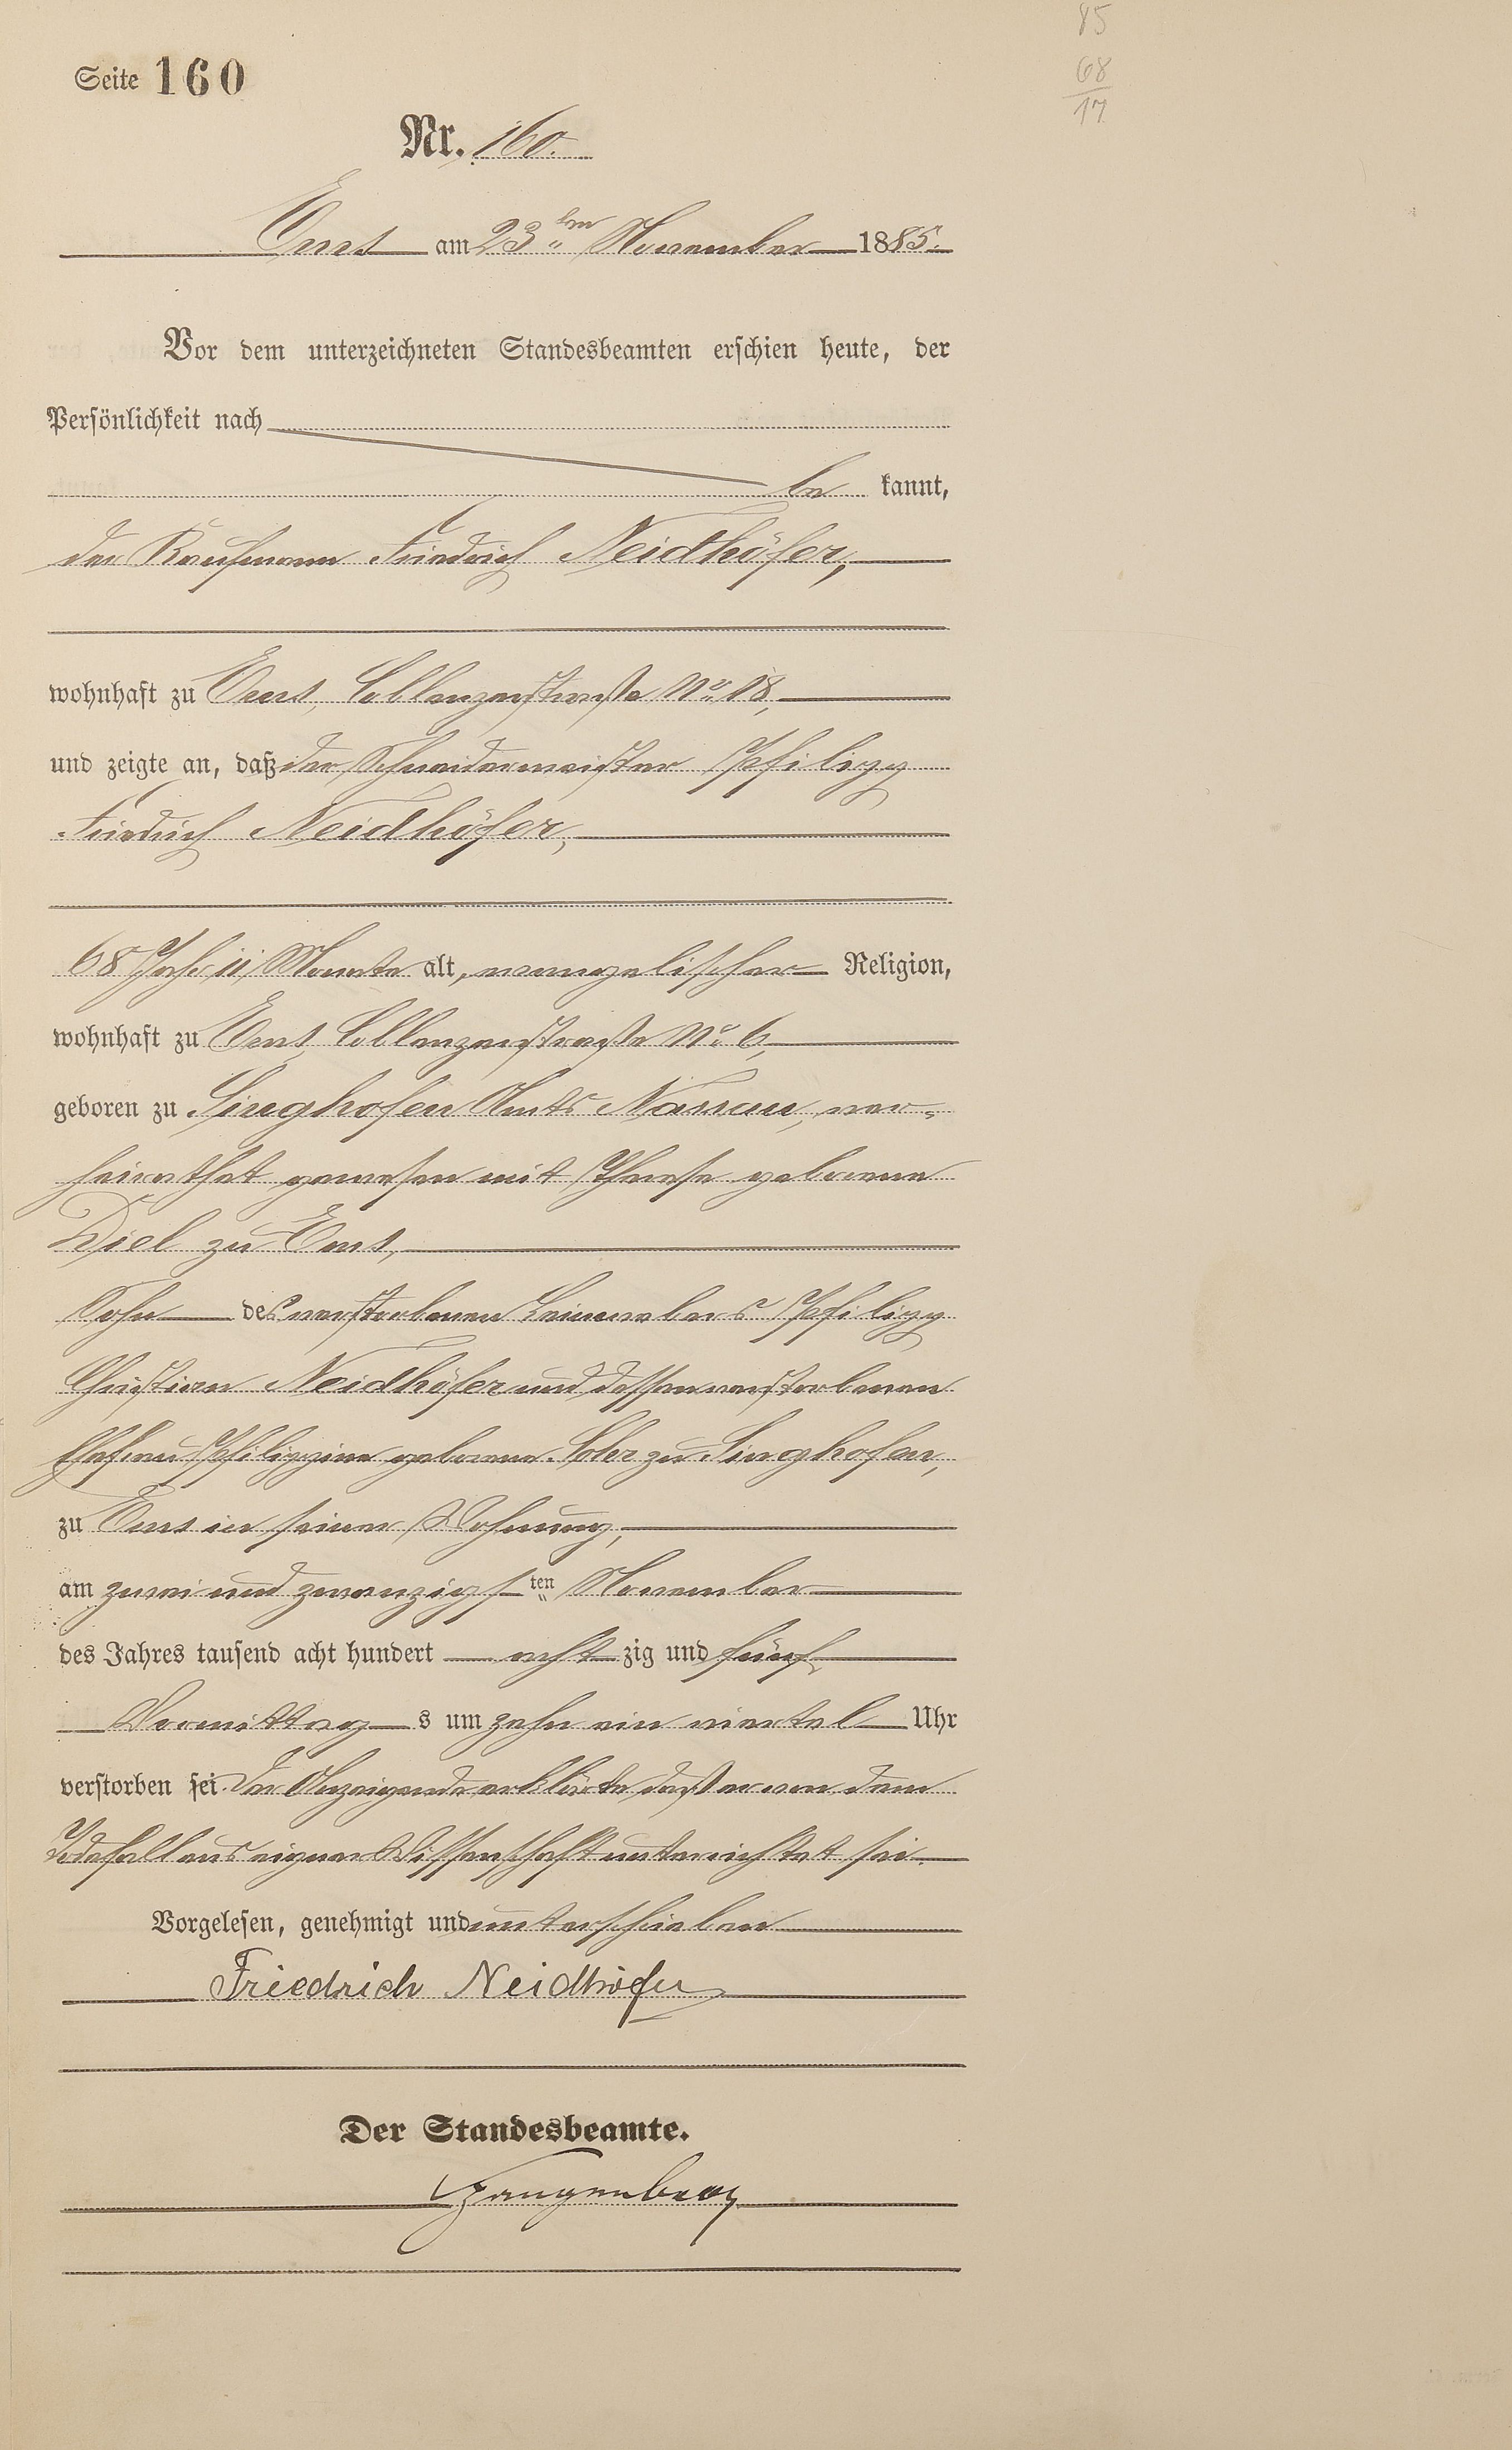 85
68
17
Seite 160
Nr. 160.
Ems am 23ten November 1885.
Vor dem unterzeichneten Standesbeamten erschien heute, der
Persönlichkeit nach
be kannt,
der Kaufmann Friedrich Neidhöfer,
wohnhaft zu Ems, Coblenzerstraße No 18,
und zeigte an, daß der Schneidermeister Philipp
Friedrich Neidhöfer,
68 Jahr, 11 Monate alt, evangelischer Religion,
wohnhaft zu Ems, Coblenzerstraße No 6,
geboren zu Singhofen Amts Nassau, ver-
heirathet gewesen mit Therese geborene
Diel zu Ems,
Sohn des verstorbenen Leinwebers Philipp
Christian Neidhöfer und dessen verstorbenen
Ehefrau Philippine geborene zu Singhofen,
zu Ems in seiner Wohnung,
am zwei und zwanzigsten November
des Jahres tausend acht hundert acht zig und fünf
Vormittag s um zehn ein viertel Uhr
verstorben sei. Der Anzeigende erklärte, daß er von dem
Todesfall aus eigener Wissenschaft unterrichtet sei.
Vorgelesen, genehmigt und unterschrieben
Friedrich Neidhöfer
Der Standesbeamte.